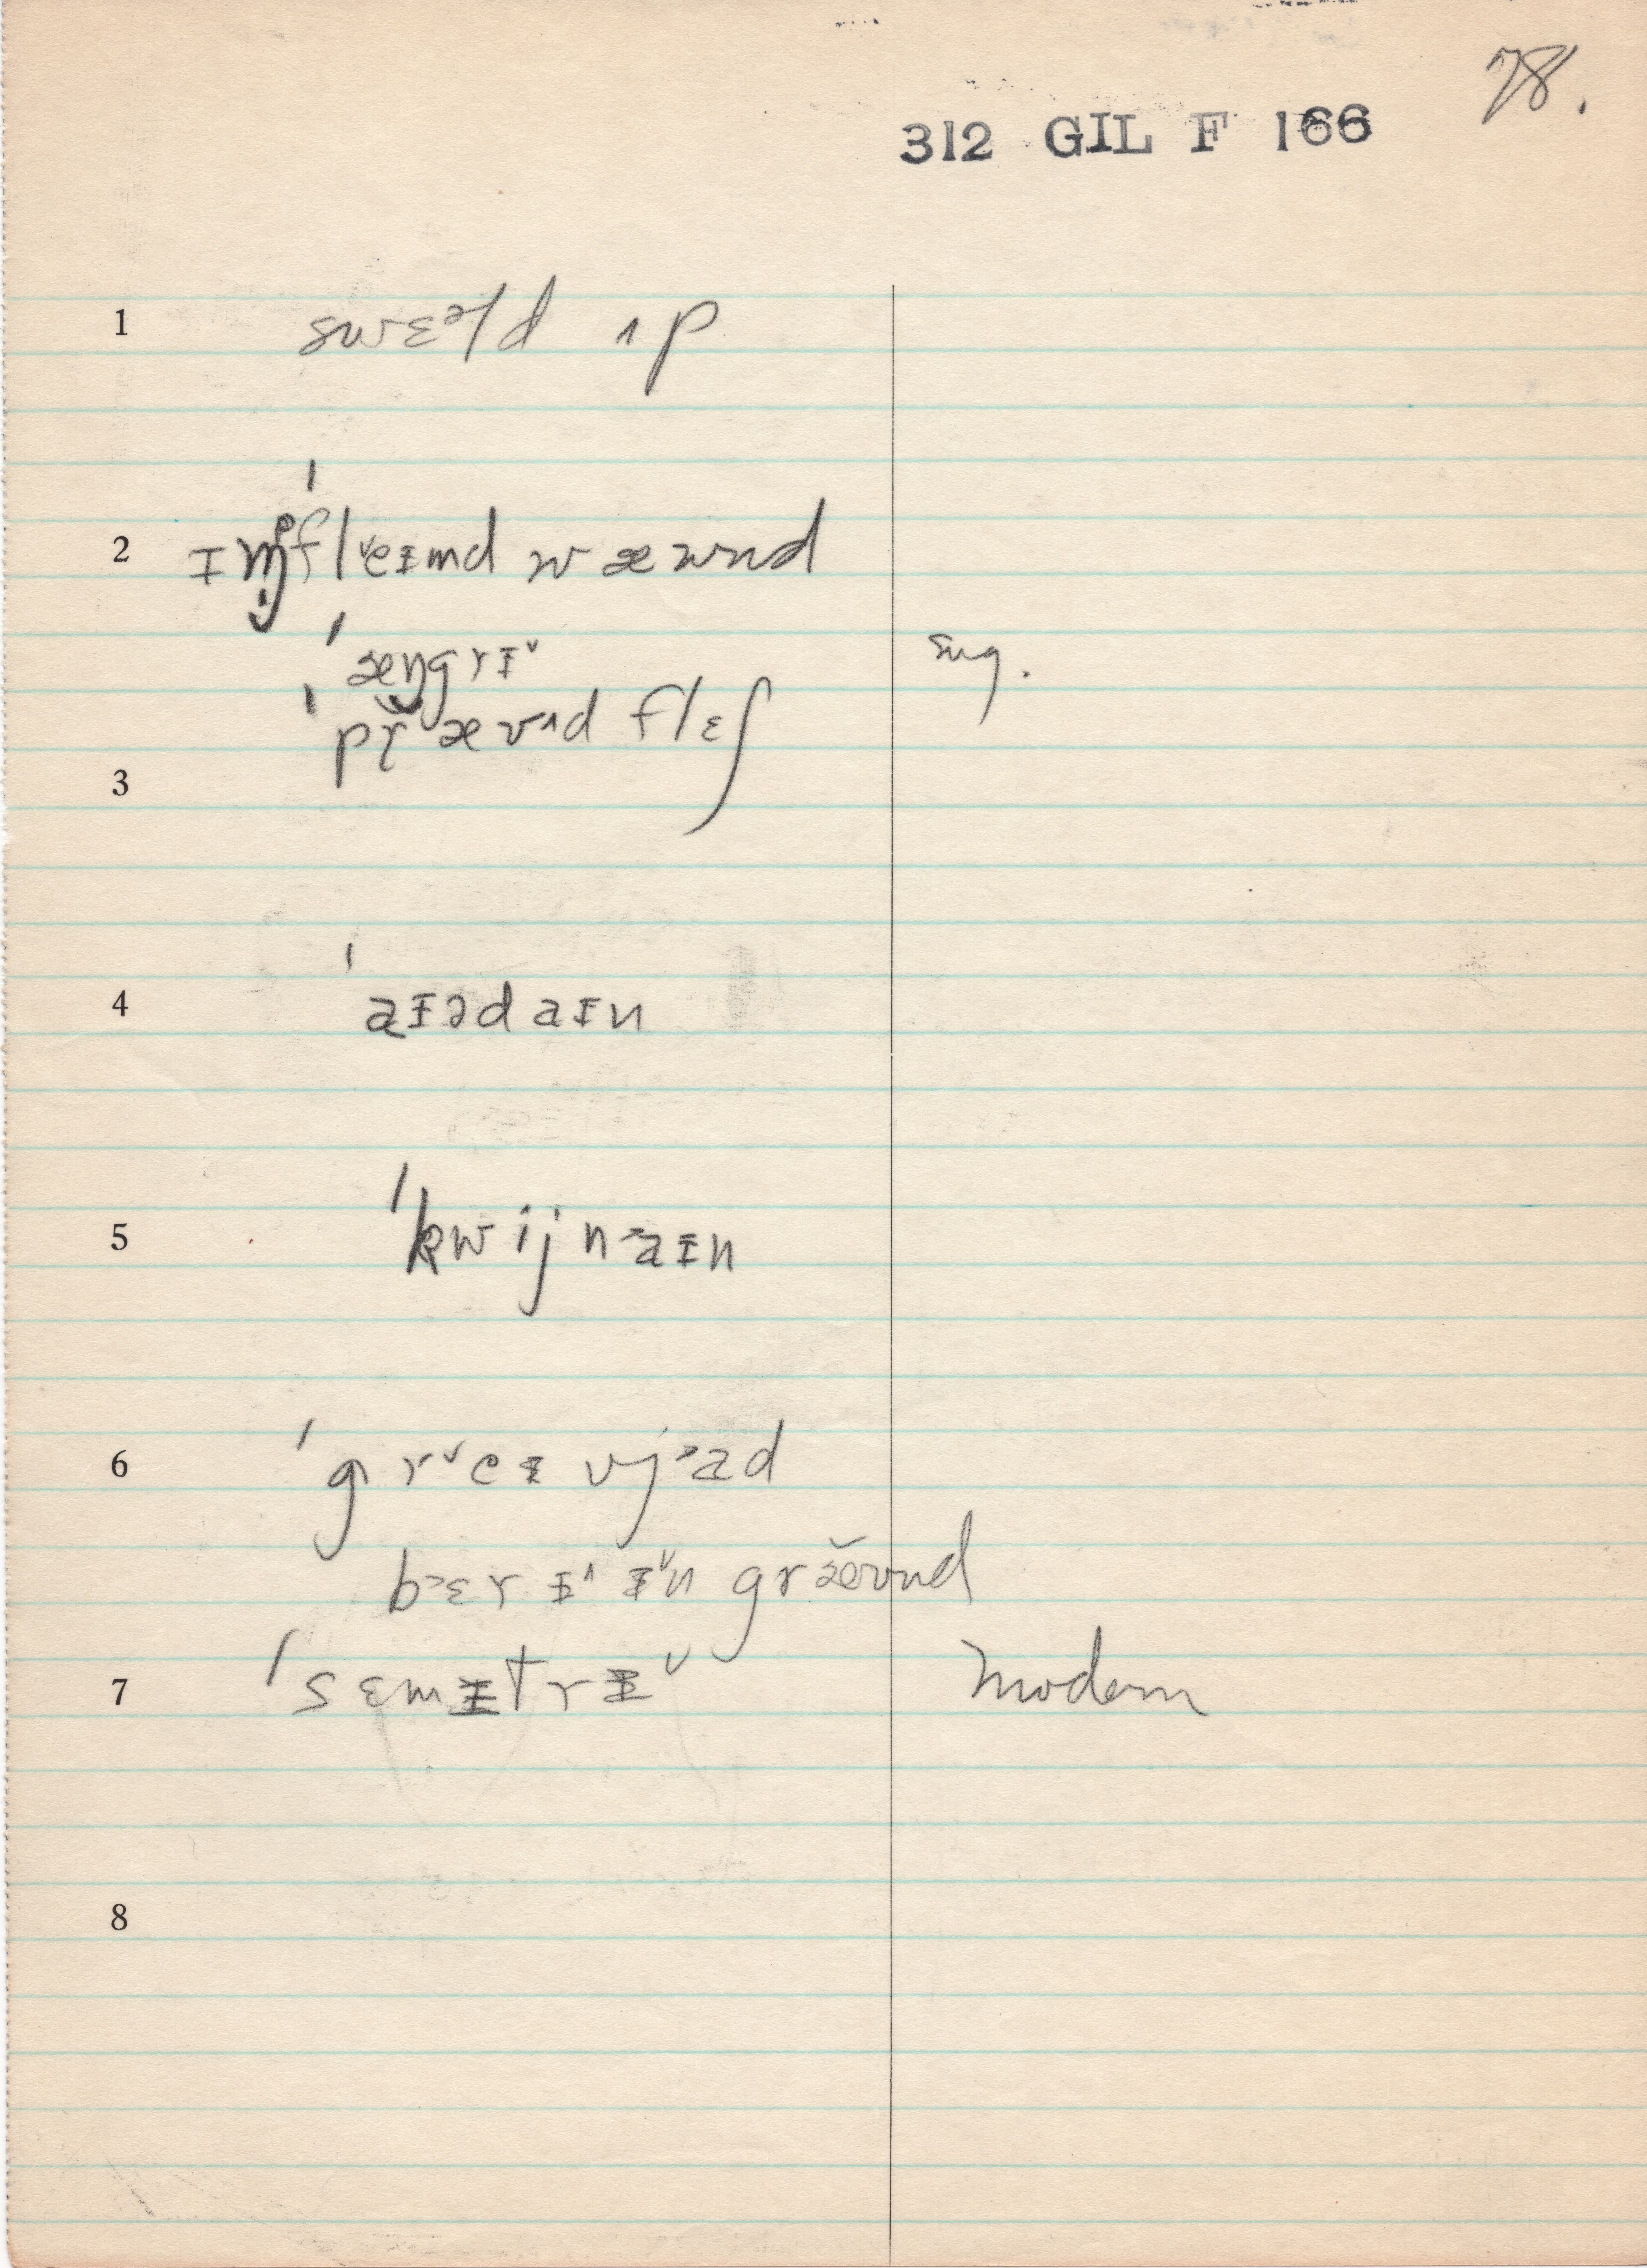 78.
312 GIL F 166
1 swɛᵊld ʌp
2 ɪɱˈfl˅eɪmd wæwnd
ˈæŋgrɪ˅ sug.
3 ˈpr̆æʊʌd flɛʃ
4 ˈaɪədaɪn
5 ˈkwijn˃aɪn
6 ˈgr˅eɪvj˃ad
b˃ɛrɪ˄ ɪ˅n græ̆ʊnd
7 ˈsɛmɪtrɪ˅ Modern
8